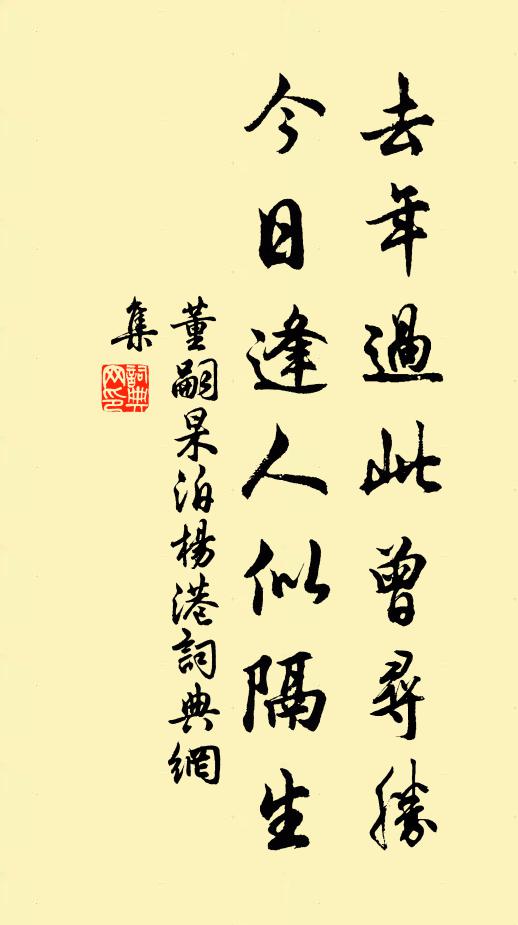 去年過此曾尋勝
今日逢人似隔生
董嗣杲泊楊港詞典網
集
詞典
网印